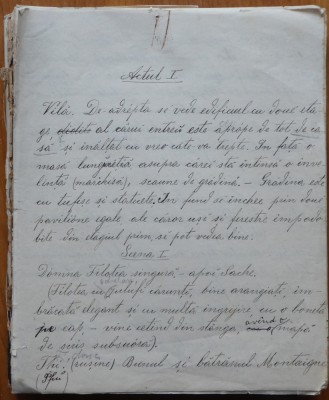 Actul I.
Vilă. De-adrépta se vede edificiul cu doue eta
ge al cărei entreu este aprópe de tot de ca
să și înălțat cu vreo câte-va trepte. In față o
masă lungăreță asupra cărei stă intinsă o inve
lintă (marchesă), scaune de grădină. – Gradina este
cu tufișe și statuete. In fund se incheie prin doue
pavilióne egale ale căror uși și ferestre impodo
bite din etagiul prim, se pot vedea bine.
Scena I.
Dómna Filotea singură – apoi Sache.
(Filotea cărunță, bine aranjată, îm
brăcată elegant și cu multă ingrijire, cu o bonetă
pe cap, – vine cetind din stânga, avênd mapă
de scris subsuóră).
(rușine) Bunul și bătrânul Montaigne